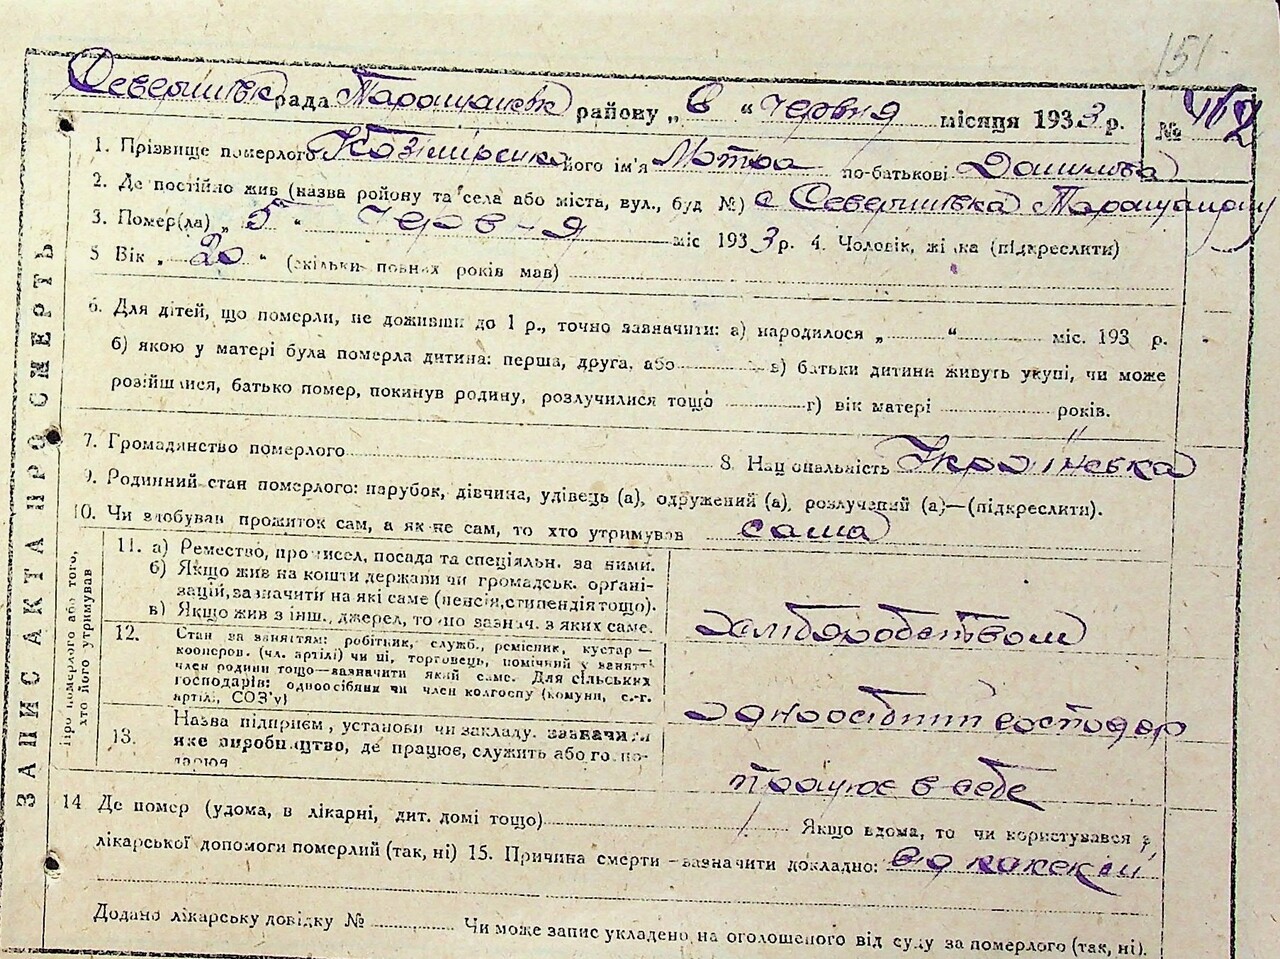 151
Севериївськ рада Таращанськ району „6“ червня місяця 1933 р. № 462
1. Прізвище померлого Козімірсико його ім'я Мотра по-батькові Данилова
2. Де постійно жив (назва району та села або міста, вул., буд №) с Севериївка Таращанру
3. Помер(ла) „5“ черв-я міс 1933 р. 4. Чоловік, жінка (підкреслити)
5 Вік „20“ (скільки повних років мав)
6. Для дітей, що померли, не доживши до 1 р., точно зазначити: а) народилося „ “ міс. 193 р.
б) якою у матері була померла дитина: перша, друга, або в) батьки дитини живуть укупі, чи може
розійшлися, батько помер, покинув родину, розлучилися тощо г) вік матері років.
7. Громадянство померлого 8. Національність Українська
9. Родинний стан померлого: парубок, дівчина, удівець (а), одружений (а), розлучений (а)—(підкреслити).
10. Чи здобував прожиток сам, а як не сам, то хто утримував сама
ЗАПИС АКТА ПРО СМЕРТЬ
Про померлого або того, хто його утримував
11. а) Ремество, промисел, посада та спеціяльн. за ними.
б) Якщо жив на кошти держави чи громадськ. органі-
зацій, зазначити на які саме (пенсія, стипендія тощо).
в) Якщо жив з інш., джерел, точно зазнач. з яких саме.
хліборобством
12. Стан за заняттям: робітник, служб., ремісник, кустар—
кооперов. (чл. артілі) чи ні, торговець, помічний у занятті
член родини тощо—зазначити який саме. Для сільських
господарів: одноосібник чи член колгоспу (комуни, с.-г.
артілі, СОЗ'у)
одноосібний господар
13. Назва підприєм, установи чи закладу. зазначити
яке виробництво, де працює, служить або госпо-
дарює
працює в себе
14 Де помер (удома, в лікарні, дит. домі тощо) Якщо вдома, то чи користувався з
лікарської допомоги померлий (так, ні) 15. Причина смерти – зазначити докладно: від кахексії
Додано лікарську довідку № Чи може запис укладено на оголошеного від суду за померлого (так, ні).